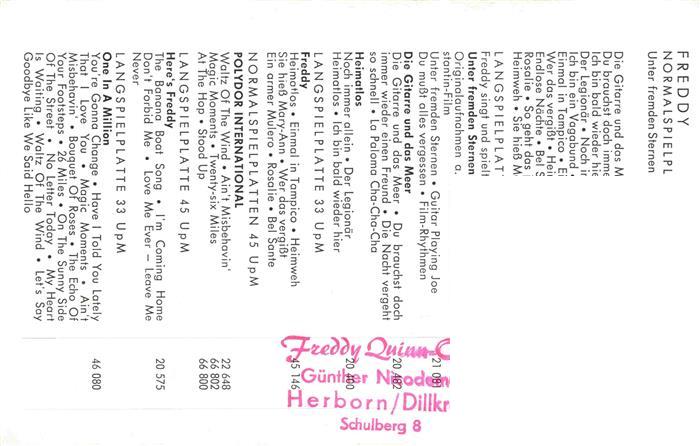 FREDDY
NORMALSPIELPL
Unter fremden Sternen
Die Gitarre und das M
Du brauchst doch imme
Ich bin bald wieder hie
Der Legionär • Noch ir
Ich bin ein Vagabund
Einmal in Tampico • Ei
Wer das vergißt • Hei
Endlose Nächte • Bel S
Rosalie • So geht das
Heimweh • Sie hieß M
LANGSPIELPLAT
Freddy singt und spiel
Originalaufnahmen a.
Unter fremden Sternen
stantin-Film
Unter fremden Sternen • Guitar Playing Joe
Du mußt alles vergessen • Film-Rhythmen
Die Gitarre und das Meer
Die Gitarre und das Meer • Du brauchst doch
immer wieder einen Freund • Die Nacht vergeht
so schnell • La Paloma Cha-Cha-Cha
Heimatlos
Noch immer allein • Der Legionär
Heimatlos • Ich bin bald wieder hier
LANGSPIELPLATTE 33 UpM
Freddy
Heimatlos • Einmal in Tampico • Heimweh
Sie hieß Mary-Ann • Wer das vergißt
Ein armer Mulero • Rosalie • Bel Sante
45 146
NORMALSPIELPLATTEN 45 UpM
POLYDOR INTERNATIONAL
Waltz Of The Wind • Ain't Misbehavin' 22 648
Magic Moments • Twenty-six Miles 66 802
At The Hop • Stood Up 66 800
LANGSPIELPLATTE 45 UpM
Here's Freddy
The Banana Boat Song • I'm Coming Home 20 575
Don't Forbid Me • Love Me Ever – Leave Me
Never
LANGSPIELPLATTE 33 UpM
One In A Million
You're Gonna Change • Have I Told You Lately 46 080
That I Love You • Magic Moments • Ain't
Misbehavin' • Bouquet Of Roses • The Echo Of
Your Footsteps • 26 Miles • On The Sunny Side
Of The Street • No Letter Today • My Heart
Is Waiting • Waltz Of The Wind • Let's Say
Goodbye Like We Said Hello
Freddy Quinn-C
Günther
Herborn/Dillkr
Schulberg 8